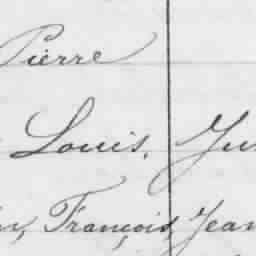 Pierre
Louis,
François, Jean